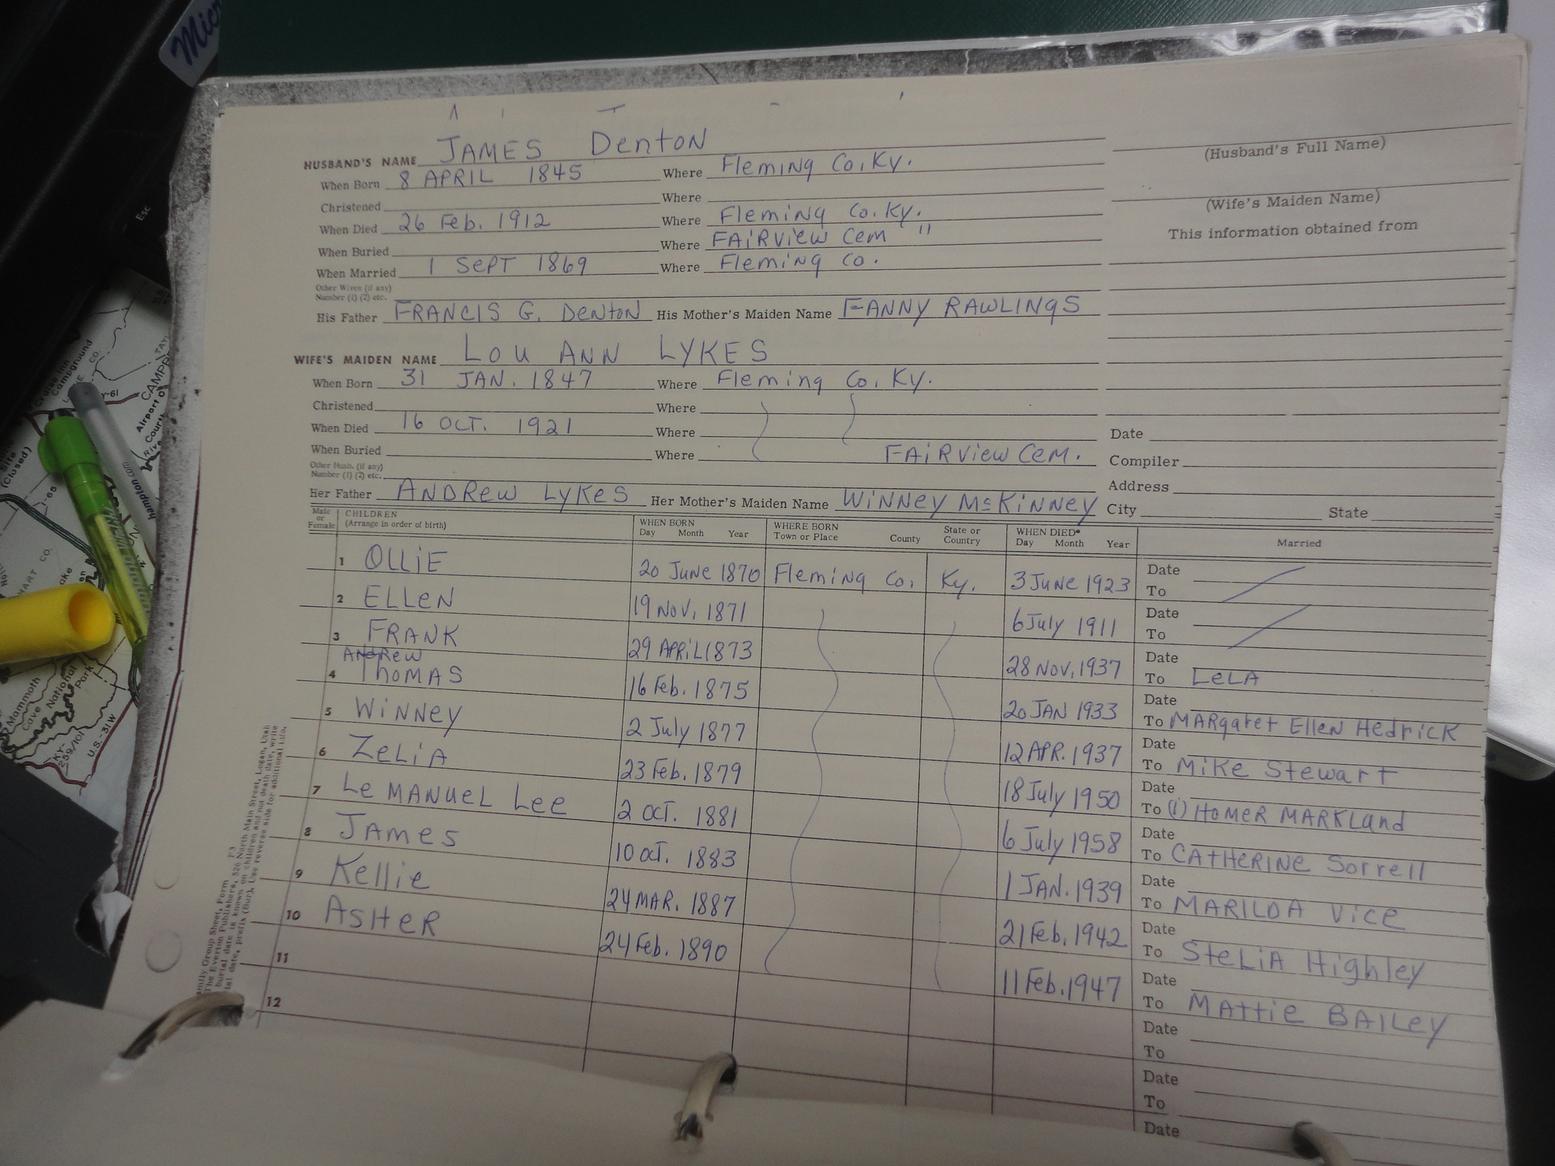 JAMES Denton
HUSBAND'S NAME
When Born 8 APRIL 1845 Where Fleming Co, Ky.
Christened Where
When Died 26 Feb. 1912 Where Fleming Co. Ky.
When Buried Where FAIRVIEW Cem "
When Married 1 SEPT 1869 Where Fleming Co.
Other Wives (if any)
Number (1) (2) etc.
His Father FRANCIS G. DENTON His Mother's Maiden Name FANNY RAWLINGS
WIFE'S MAIDEN NAME LOU ANN LYKES
When Born 31 JAN. 1847 Where Fleming Co. Ky.
Christened Where
When Died 16 OCT. 1921 Where
When Buried Where FAIRVIEW CEM.
Other Husb. (if any)
Number (1) (2) etc.
Her Father ANDREW LYKES Her Mother's Maiden Name WINNEY McKINNEY
(Husband's Full Name)
(Wife's Maiden Name)
This information obtained from
Date
Compiler
Address
City State
Male or Female CHILDREN (Arrange in order of birth) WHEN BORN Day Month Year WHERE BORN Town or Place County State or Country WHEN DIED* Day Month Year Married
1 OLLIE 20 June 1870 Fleming Co, Ky. 3 June 1923 Date To
2 ELLEN 19 Nov, 1871 6 July 1911 Date To
3 FRANK 29 APRIL 1873 28 Nov, 1937 Date To LELA
4 Andrew THOMAS 16 Feb. 1875 20 JAN 1933 Date To MARgaret Ellen HedricK
5 WINNEY 2 July 1877 12 APR. 1937 Date To MIKE Stewart
6 ZELIA 23 Feb. 1879 18 July 1950 Date To (1) HOMER MARKLand
7 Le MANUEL Lee 2 OCT. 1881 6 July 1958 Date To CATHERINE Sorrell
8 JAMES 10 OCT. 1883 1 JAN. 1939 Date To MARILDA VICE
9 Kellie 24 MAR. 1887 21 Feb, 1942 Date To STELIA Highley
10 ASHER 24 Feb. 1890 11 Feb. 1947 Date To MAttiE BAILEY
11 Date To
12 Date To
Date